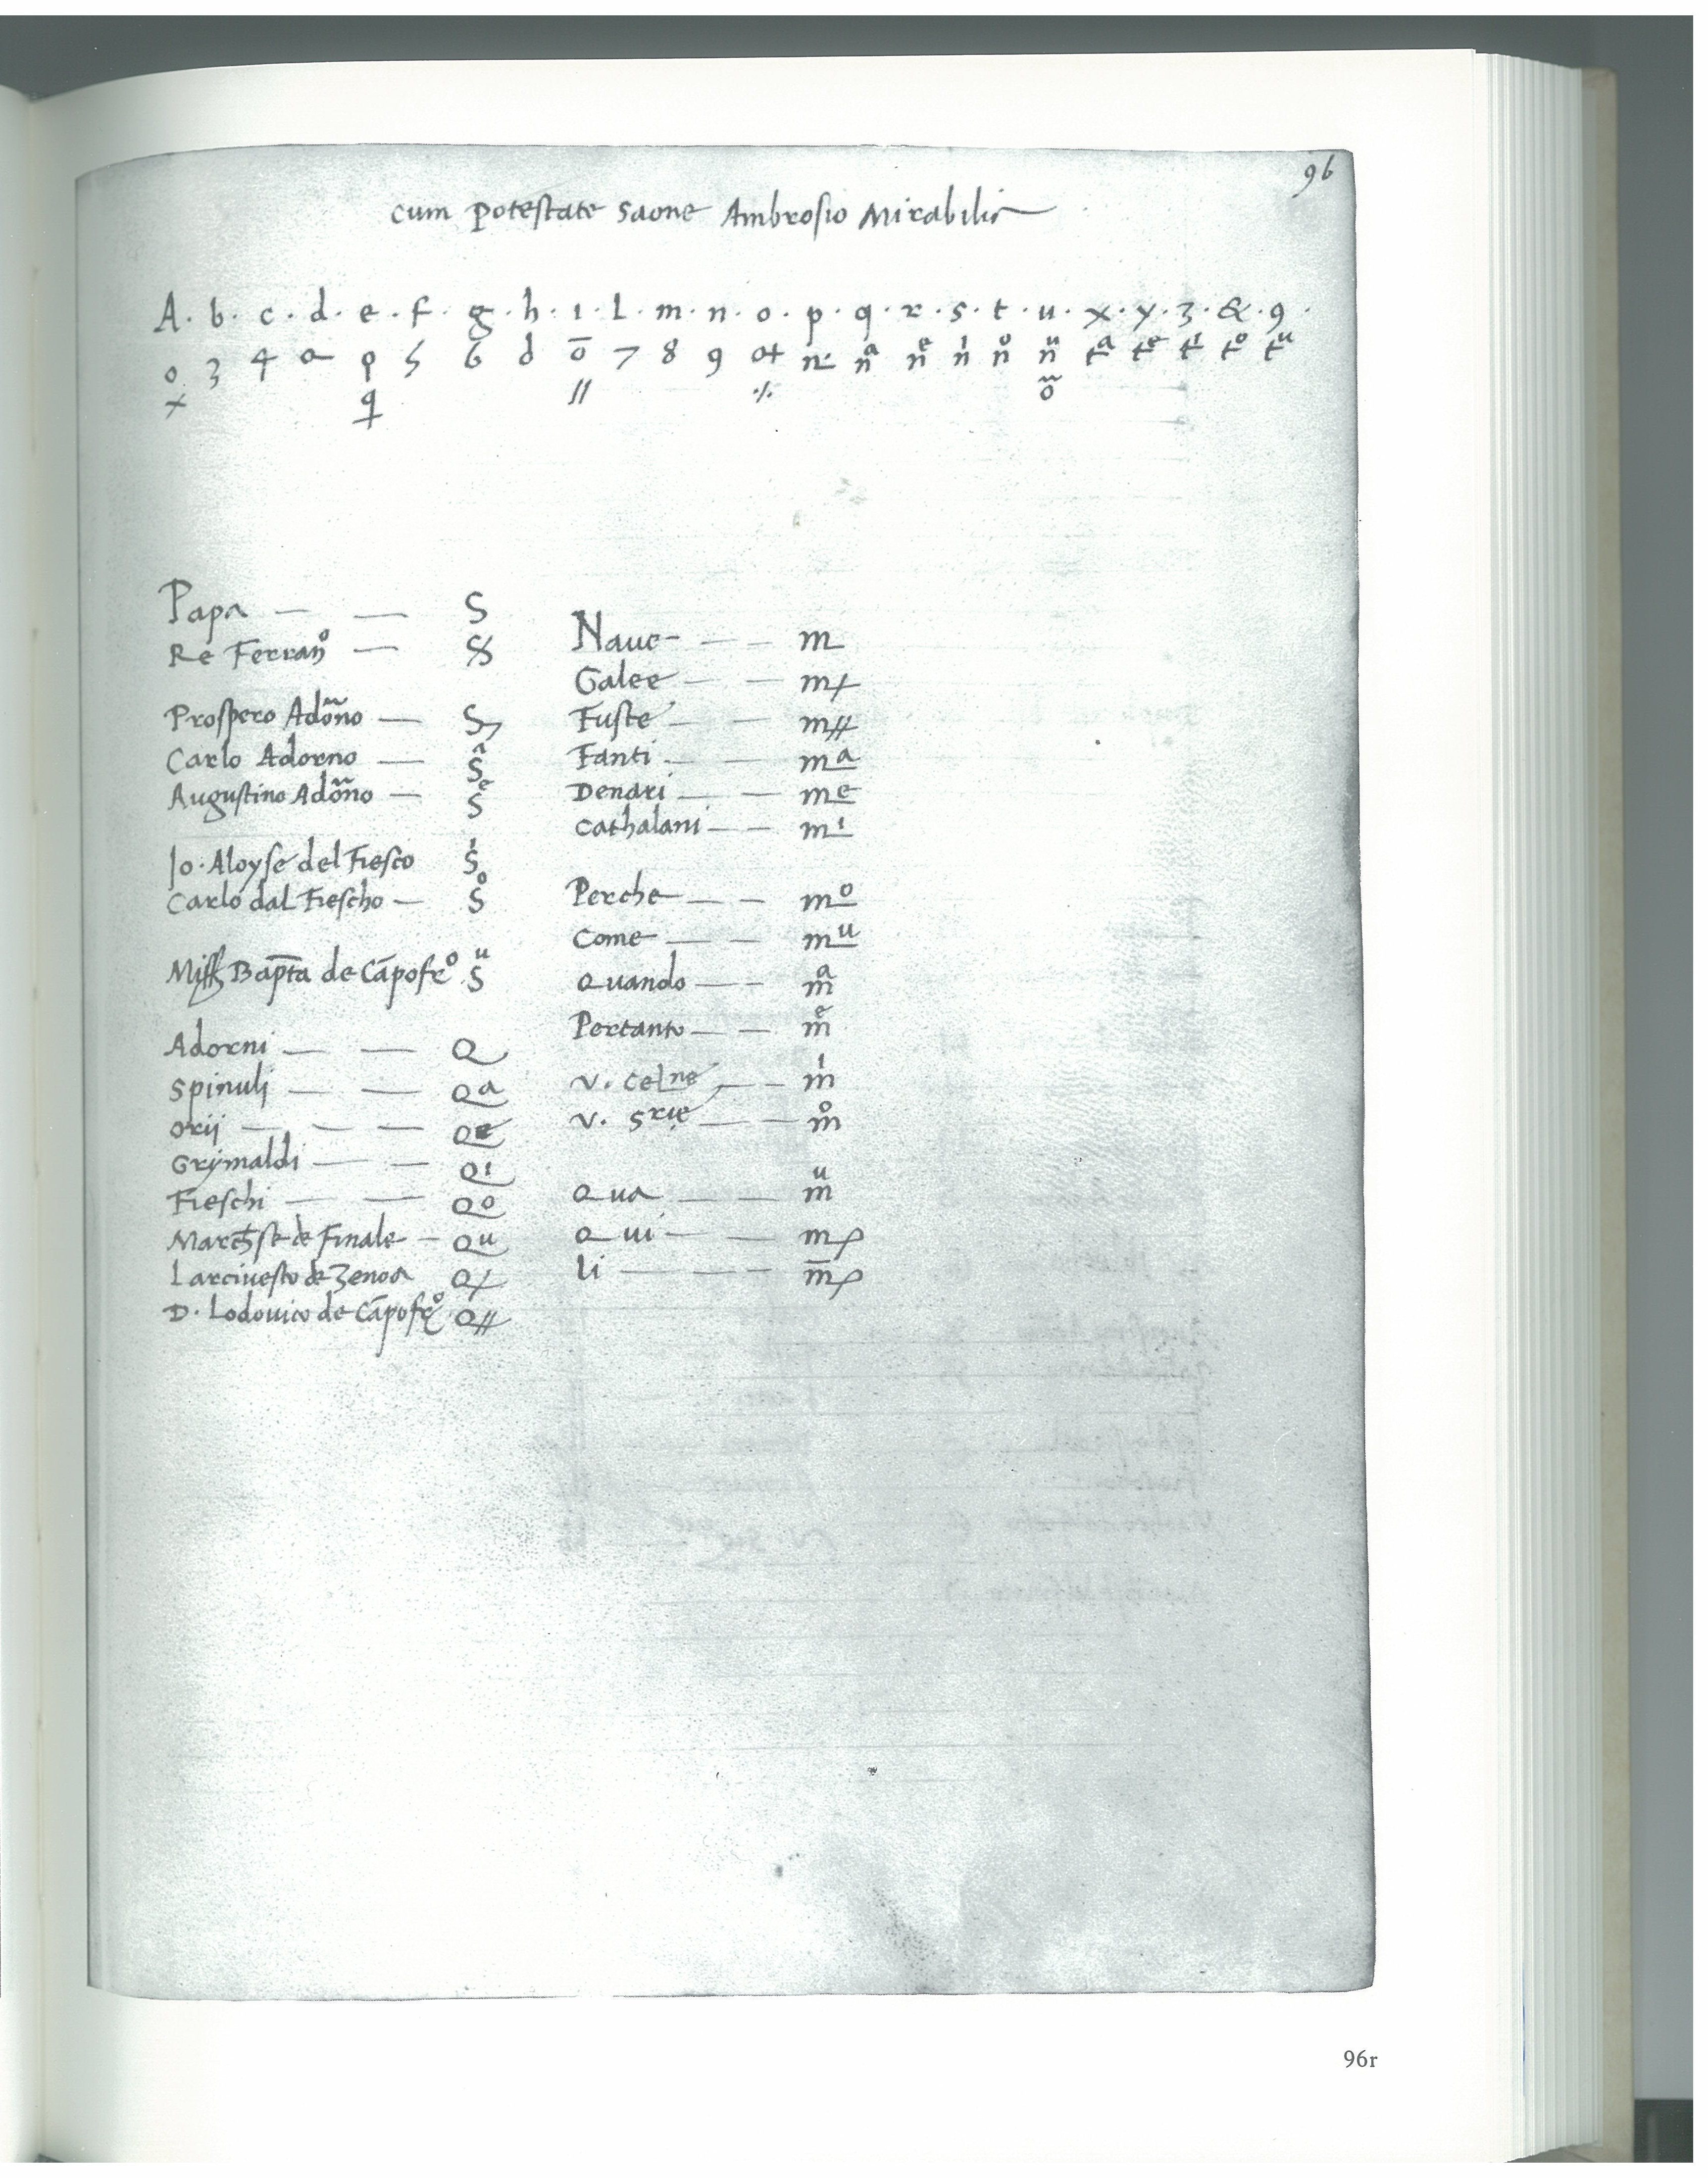 96
cum potestate Saone Ambrosio Mirabilis
A · b · c · d · e · f · g · h · ı · l · m · n · o · p · q · r · s · t · u · x · y · z · & · 9 ·
o 3 4 a ρ 5 6 d ō 7 8 9 o+ n nͣ nͤ nͥ nͦ nͧ tͣ tͤ tͥ tͦ tͧ
+ q // ·/· õ
Papa — — S
Re Ferranͦ —
Prospero Adoño —
Carlo Adorno — Sͣ
Augustino Adoño — Sͤ
Jo · Aloyse del Fiesco Sͥ
Carlo dal Fiescho — Sͦ
Baptā de Cāpofrͦ Sͧ
Adorni — — Q
Spinuli — — Qa
Orij — — — Qe
Grymaldi — — Qi
Fieschi — — Qo
de Finale — Qu
Larciuesco de Zenoa Q+
D · Lodouico de Cāpofrͦ Q//
Naue — — m
Galee — — m+
Fuste — — m//
Fanti — — ma
Denari — — me
Cathalani — — mi
Perche — — mo
Come — — mu
Quando — — mͣ
Pertanto — — mͤ
V. Celne — — mͥ
V. Srie — — mͦ
Qua — — mͧ
Qui — — mρ
li — — — m̄ρ
96r